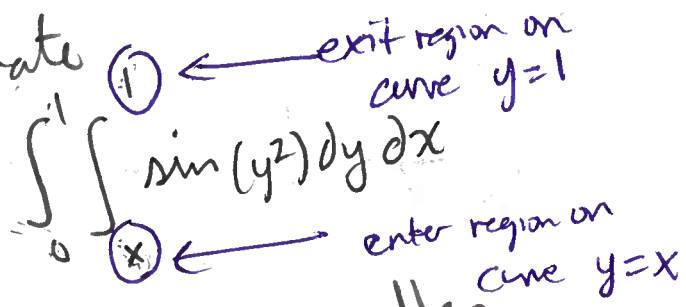 exit region on
curve y=1
∫₀¹ ∫ₓ¹ sin(y²) dy dx
enter region on
curve y=x